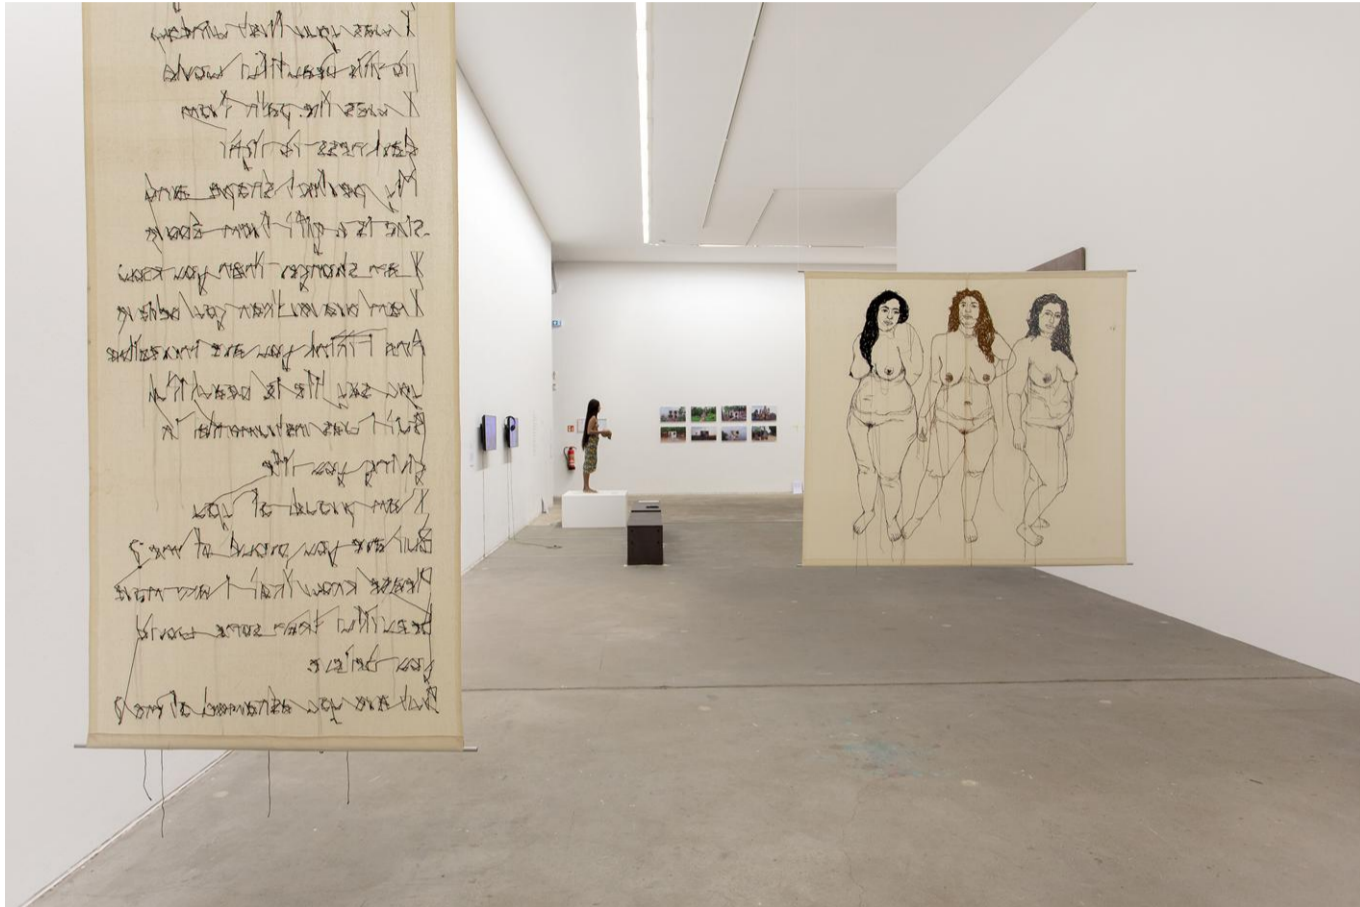 to this beautiful world
It was the path from
darkness to light
My perfect shape and
size is a gift from God
I am stronger than you know
I am braver than you believe
And I think you are
you say life is beautiful
But
giving you life
I am proud of you
But are you proud of me?
Please know that I am more
beautiful than some would
you believe
But are you ashamed of me?